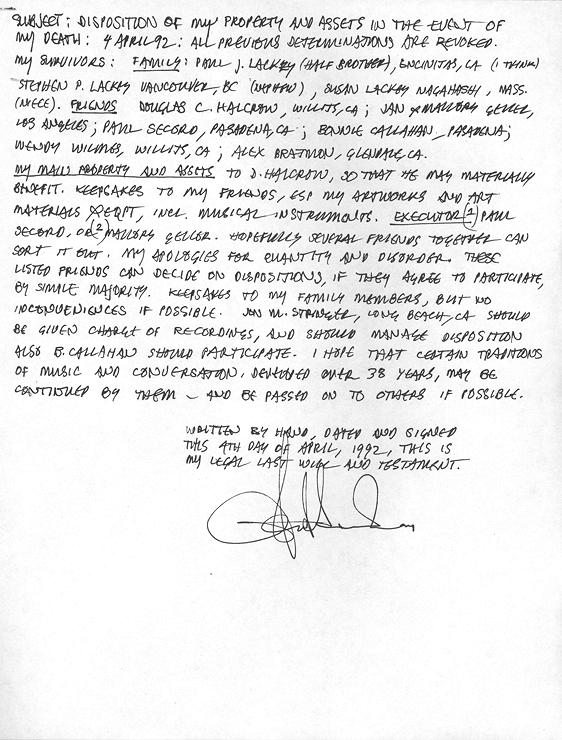 SUBJECT: DISPOSITION OF MY PROPERTY AND ASSETS IN THE EVENT OF
MY DEATH: 4 APRIL 92: ALL PREVIOUS DETERMINATIONS ARE REVOKED.
MY SURVIVORS: FAMILY: PAUL J. LACKEY (HALF BROTHER), ENCINITAS, CA (I THINK)
STEPHEN P. LACKEY VANCOUVER, BC (NEPHEW), SUSAN LACKEY NAGAHASHI, MASS.
(NIECE). FRIENDS DOUGLAS C. HALCROW, WILLITS, CA; JAN & MALLORY GELLER,
LOS ANGELES; PAUL SECORD, PASADENA, CA; BONNIE CALLAHAN, PASADENA;
WENDY WILMES, WILLITS, CA; ALEX BRATMON, GLENDALE, CA.
MY MAIN PROPERTY AND ASSETS TO D. HALCROW, SO THAT HE MAY MATERIALLY
BENEFIT. KEEPSAKES TO MY FRIENDS, ESP MY ARTWORKS AND ART
MATERIALS & EQPT, INCL. MUSICAL INSTRUMENTS. EXECUTOR (1) PAUL
SECORD, OR (2) MALLORY GELLER. HOPEFULLY SEVERAL FRIENDS TOGETHER CAN
SORT IT OUT. MY APOLOGIES FOR QUANTITY AND DISORDER. THESE
LISTED FRIENDS CAN DECIDE ON DISPOSITIONS, IF THEY AGREE TO PARTICIPATE,
BY SIMPLE MAJORITY. KEEPSAKES TO MY FAMILY MEMBERS, BUT NO
INCONVENIENCES IF POSSIBLE. JON M. STRINGER, LONG BEACH, CA SHOULD
BE GIVEN CHARGE OF RECORDINGS, AND SHOULD MANAGE DISPOSITION
ALSO B. CALLAHAN SHOULD PARTICIPATE. I HOPE THAT CERTAIN TRADITIONS
OF MUSIC AND CONVERSATION, DEVELOPED OVER 38 YEARS, MAY BE
CONTINUED BY THEM – AND BE PASSED ON TO OTHERS IF POSSIBLE.
WRITTEN BY HAND, DATED AND SIGNED
THIS 4TH DAY OF APRIL, 1992, THIS IS
MY LEGAL LAST WILL AND TESTAMENT.